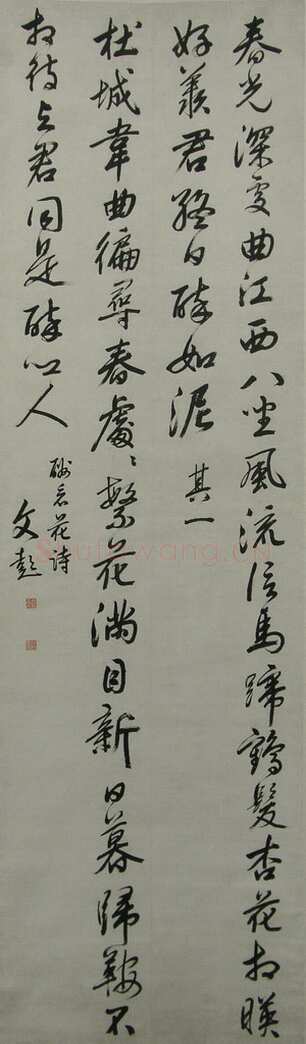 春光深處曲江西八坐風流信馬蹄鶴髮杏花相暎
好羨君終日醉如泥 其一
杜城韋曲徧尋春處〻繁花滿目新日暮歸鞍不
相待與君同是醉鄉人
酬花詩
文彭